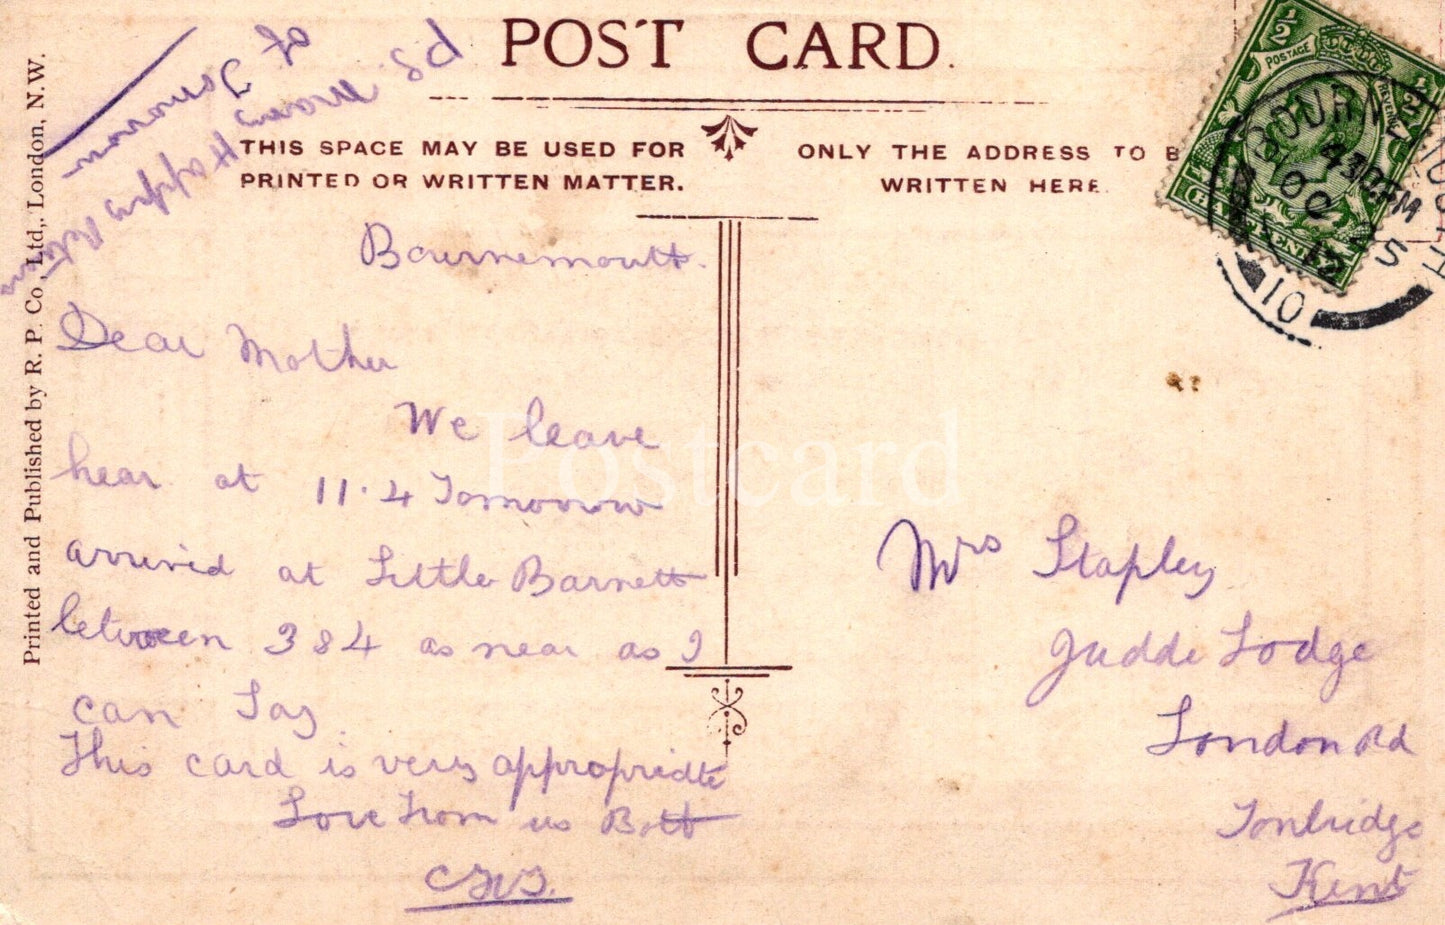 POST CARD.
THIS SPACE MAY BE USED FOR
PRINTED OR WRITTEN MATTER.
ONLY THE ADDRESS TO B
WRITTEN HERE.
Printed and Published by R. P. Co., Ltd., London, N.W.
PS. many Happy
of
½ POSTAGE REVENUE ½
HALFPENNY
BOURNEMOUTH
4 30 PM
OC
12
10
Bournemouth.
Dear Mother
We leave
hear at 11.4 Tomorrow
arrived at Little Barnett
between 3 & 4 as near as I
can Say
This card is very appropriate
Love From us Bott
Mrs Stapley
Judde Lodge
London Rd
Tonbridge
Kent
Postcard